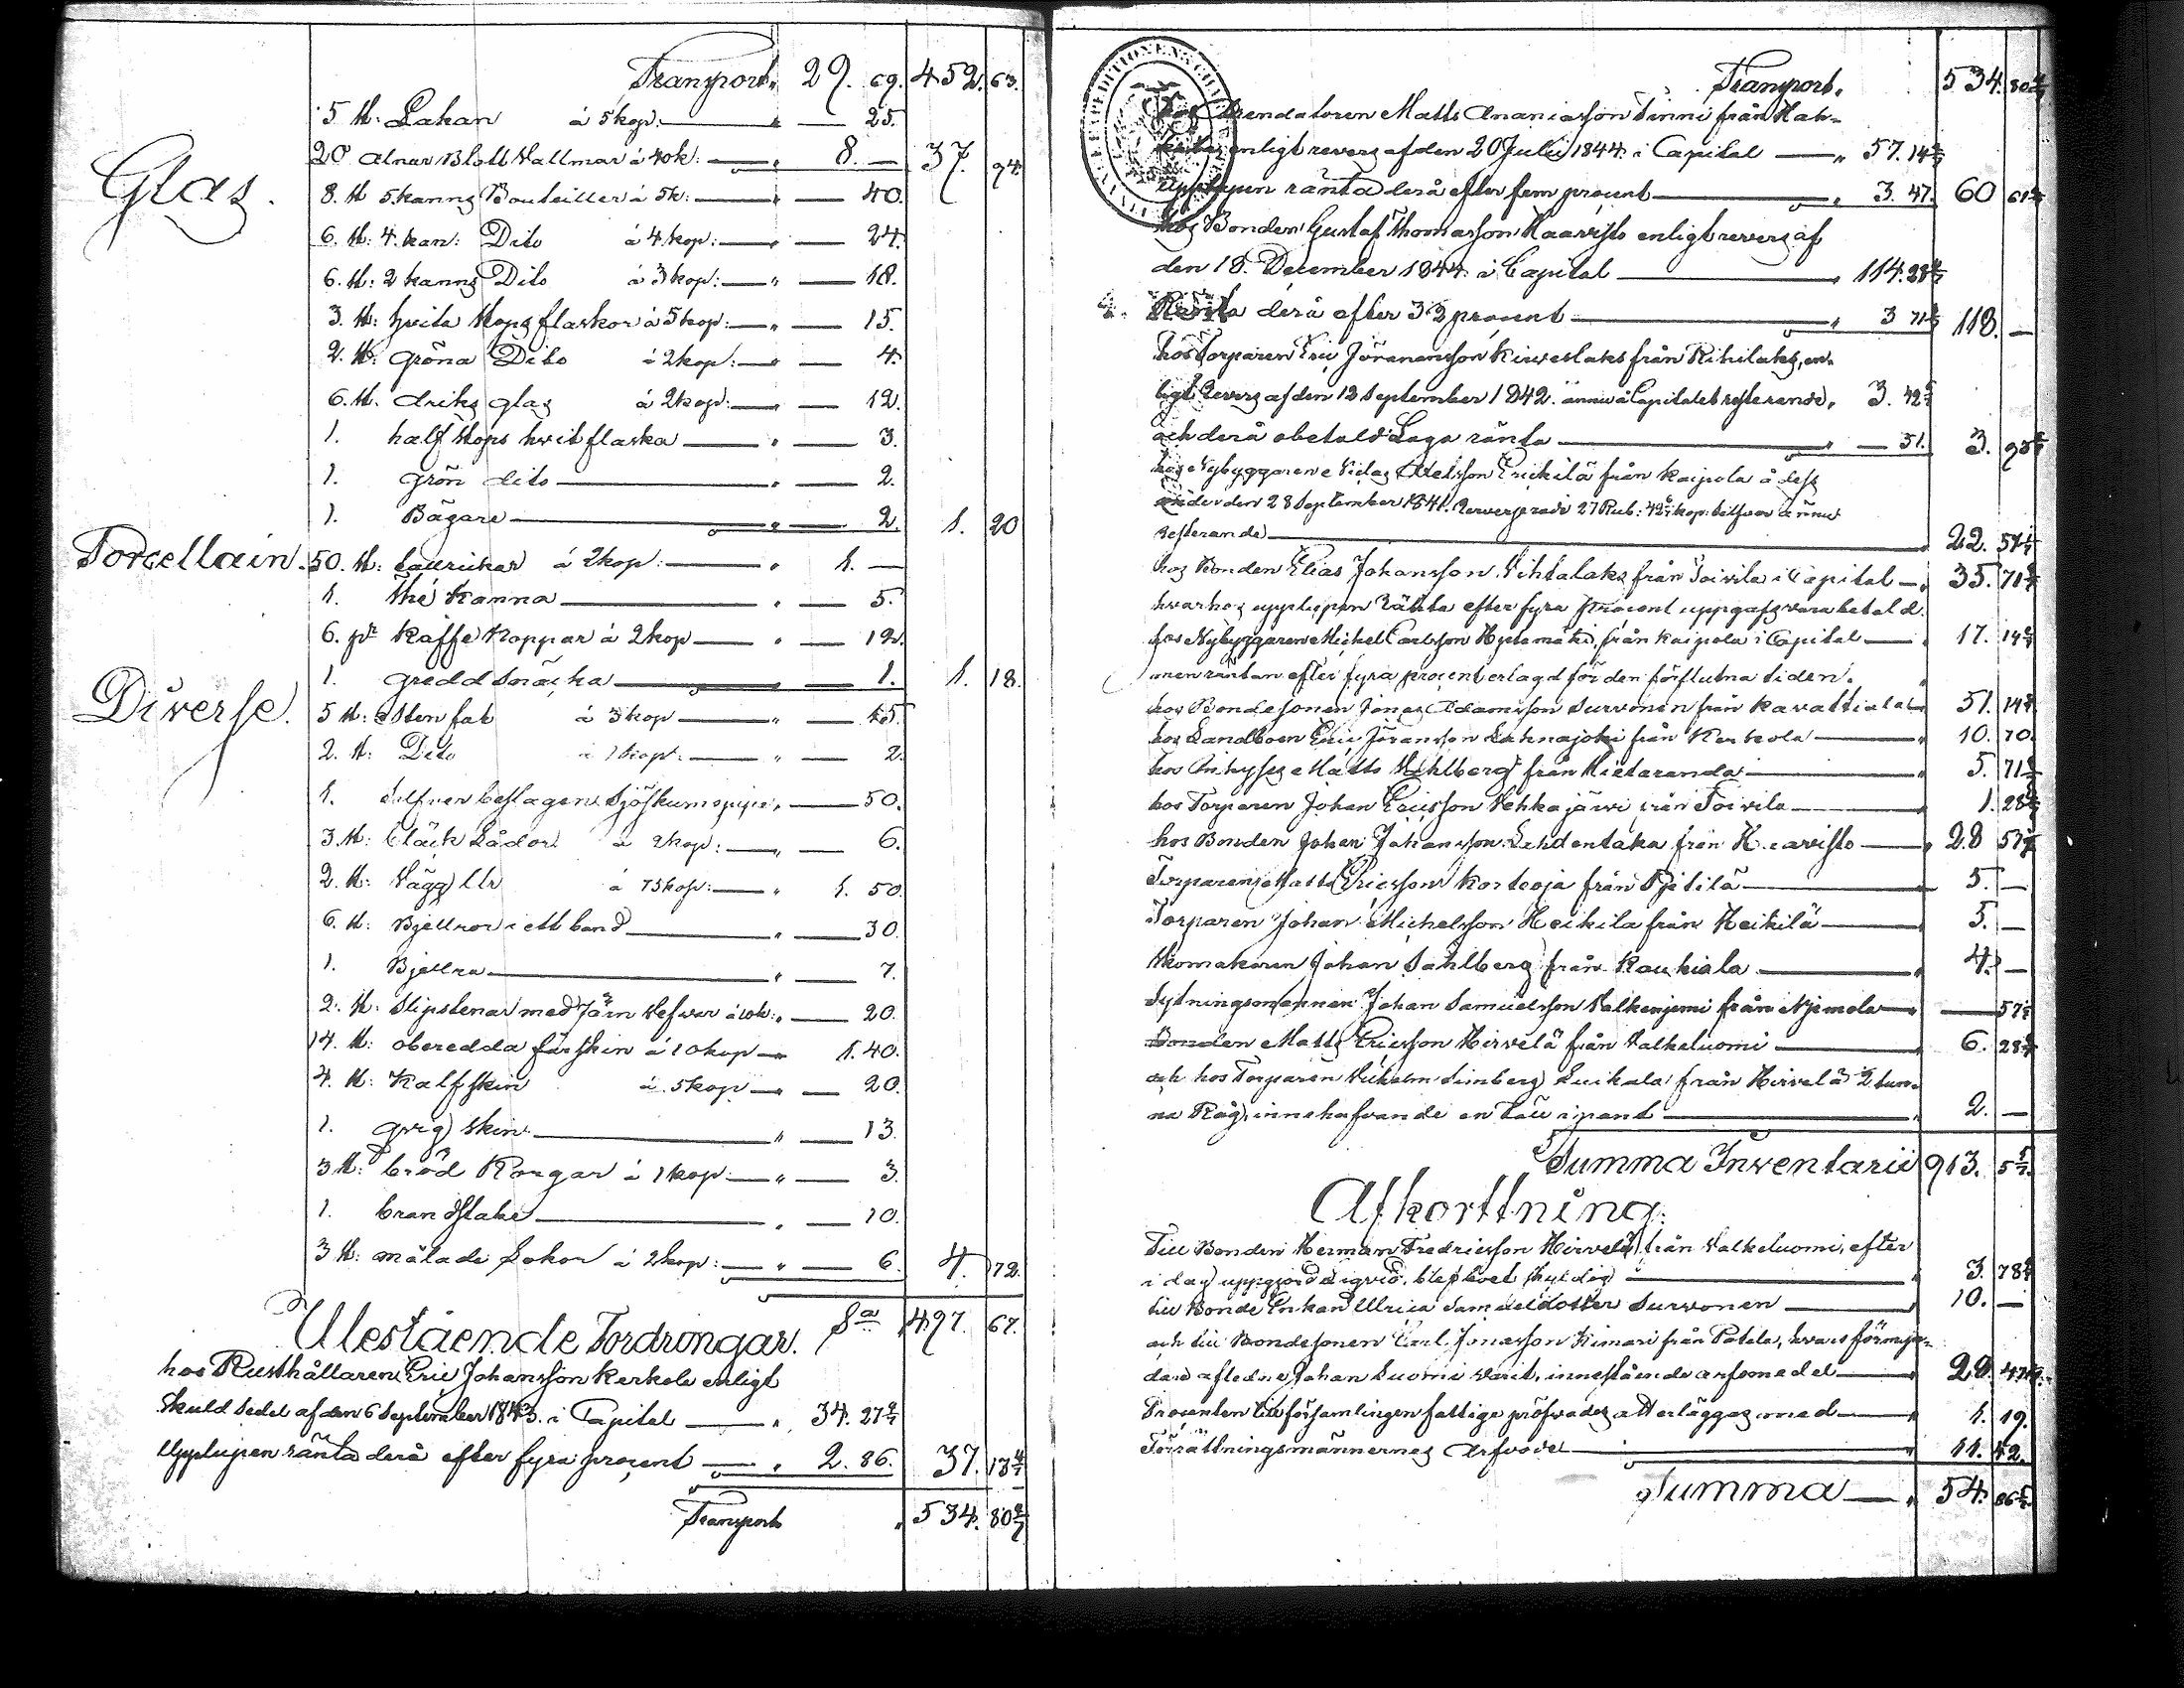 Transport „ 29. 69. 452. 63.
5 st: Lakan à 5 kop: „ — 25.
20 alnar Blått Vallmar à 40 k: „ 8. — 37. 94.
Glas.
8. st 5. kanns Bouteiller à 5 k: „ — 40.
6. st: 4. kan: Dito à 4 kop: „ — 24.
6. st: 2 kanns Dito à 3 kop: „ — 18.
3. st: hvita stops flaskor à 5 kop: „ — 15.
2. st: gröna Dito à 2 kop: „ — 4.
6. st. driks glas à 2 kop: „ — 12.
1. half stops hvit flaska „ — 3.
1. grön dito „ — 2.
1. Bägare „ — 2. 1. 20
Porcellain. 50. st: taurickar à 2 kop: „ 1. —
1. thé kanna „ — 5.
6. pr Kaffe Koppar à 2 kop „ — 12.
1. gredd snäcka „ — 1. 1. 18.
Diverse.
5 st: Sten fat à 3 kop „ — 15.
2. st: Dito à 1 kop: „ — 2.
1. Silfver beslagen Sjöskumspipa „ — 50.
3. st: bläck Lådor à 2 kop: „ — 6.
2. st: Vägg Ur à 75 kop: „ 1. 50.
6. st: Bjellror i ett band „ — 30.
1. Bjellra „ — 7.
2. st: Slipstenar med Järn Vefvar à 10 k: „ — 20.
14. st: oberedda fårskin à 10 kop „ 1. 40.
4. st: Kalfskin à 5 kop „ — 20.
1. skin „ — 13.
3 st: bröd Korgar à 1 kop „ — 3.
1. brandstake „ — 10.
3 st: målade à 2 kop: „ — 6. 4. 72.
Sa 497. 67.
Utestående Fordringar.
hos Rusthållaren Eric Johansson Kerkola enligt
Skuld Sedel af den 6 September 1843. i Capital „ 34. 27 2/7
Upplupen ränta derå efter fyra procent „ 2. 86. 37. 13 4/7
Transport „ 534. 80 4/7
Transport. 534. 80 4/7
hos Arendatoren Matts Ananiasson Sinni från Hah-
enligt revers af den 20 Julii 1844 i Capital „ 57. 14 2/7
Upplupen ränta derå efter fem procent „ 3. 47. 60 61 2/7
hos Bonden Gustaf Thomasson Haavisto enligt revers af
den 18. December 1844 i Capital „ 114. 28 4/7
Ränta derå efter 3 procent „ 3 71 3/7 118. —
hos Torparen Eric Göransson Kirveslaks från Rihilaks, en-
ligt Revers af den 13 September 1842. ännu å Capitalet resterande „ 3. 42 6/7
och derå obetald Laga ränta „ — 51. 3. 93 6/7
hos Nybyggaren från Kaipola å dess
under den 28 September 1841. 27 Rub: 42 6/7 kop: ännu
resterande 22. 57 1/7
hos Bonden Elias Johansson Vihtalaks från Toivila i Capital „ 35. 71 3/7
hvarhos upplupen Ränta efter fyra procent uppgafs vara betald.
hos Nybyggaren Michel Carlsson från Kaipola i Capital „ 17. 14 2/7
men räntan efter fyra procent erlagd för den förflutna tiden.
hos Bondesonen Jonas Adamsson Survonen från 51. 14 2/7
hos Landboen Eric Göransson Lahnajoki från Kerkola „ 10. 70.
hos Inhyses Matts Ahlberg från Hietaranda „ 5. 71 3/7
hos Torparen Johan Ericsson Vehkajärvi från Toivila „ 1. 28 4/7
hos Bonden Johan Johansson Lehdentaka från Haavisto „ 28 57 1/7
Torparen Matts Ericsson Korteoja från Pjetilä „ 5. —
Torparen Johan Michelsson Heikila från Heikilä „ 5. —
Skomakaren Johan Sahlberg från Raukiala „ 4. —
Sytningsmannen Johan Samuelsson Valkenjemi från Njemola „ — 57 1/7
Bonden Matts Ericsson Hirvelä från Valkeluomi „ 6. 28 4/7
och hos Torparen Vilhelm Simberg från Hirvelä ½ tun-
na Råg, innehafvande en i pant „ 2. —
Summa Inventarii 913. 5 5/7
Afkorttning:
Till Bonden Herman Fredricsson Hirvelä från Valkeluomi, efter
i dag uppgjord liqvid, blefvet skyldig „ 3. 78 4/7
till Bonde Enkan Ulrica Samuelsdotter Survonen „ 10. —
och till Bondesonen Carl Jonasson Kimari från Potala, hvars förmyn-
dare aflednе Johan Luomi varit, innestående arfsmedel „ 28 47 1/7
Procenten till församlingens fattige pröfvades att erläggas med „ 1. 19.
Förrättningsmännernes Arfvode „ 11. 42.
Summa „ 54. 86 5/7